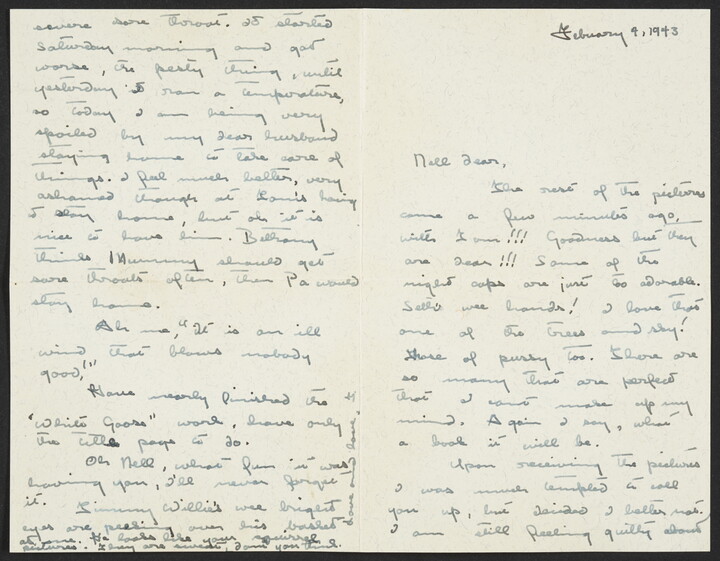 February 4, 1943
Nell dear,
The rest of the pictures
came a few minutes ago,
with Tom!!! Goodness but they
are dear!!! Some of the
night caps are just too adorable.
Seth's wee hands! I love that
one of the trees and sky!
Those of pussy too. There are
so many that are perfect
that I cant make up my
mind. Again I say, what
a book it will be.
Upon receiving the pictures
I was much tempted to call
you up, but decided I better not.
I am still feeling guilty about
severe sore throat. It started
Saturday morning and got
worse, the pesty thing, until
yesterday it ran a temperature,
so today I am being very
spoiled by my dear husband
staying home to take care of
things. I feel much better, very
ashamed though at having
to stay home, but oh it is
nice to have him. Bethany
thinks Mummy should get
sore throats often, then Pa would
stay home.
Ah me, "It is an ill
wind that blows nobody
good!"
Have nearly finished the
"White Goose" work, have only
the title page to do.
Oh Nell, what fun it was
having you, I'll never forget
it.
Jimmy Willie's wee bright
eyes are peeking over his basket
at me. He looks like your squirrel
pictures. They are sweet, don't you think.
love and love,